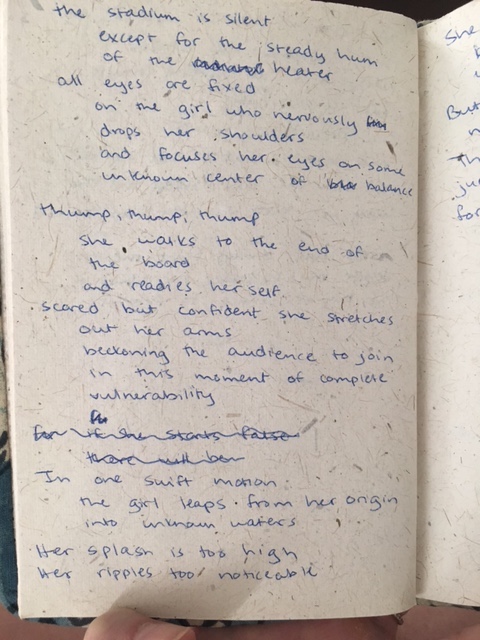 the stadium is silent
except for the steady hum
of the heater
all eyes are fixed
on the girl who nervously
drops her shoulders
and focuses her eyes on some
unknown center of balance
thump, thump, thump
she walks to the end of
the board
and readies her self
scared but confident she stretches
out her arms
beckoning the audience to join
in this moment of complete
vulnerability
for if she starts false
there will be
In one swift motion
the girl leaps from her origin
into unknown waters
Her splash is too high
Her ripples too noticeable
She
But